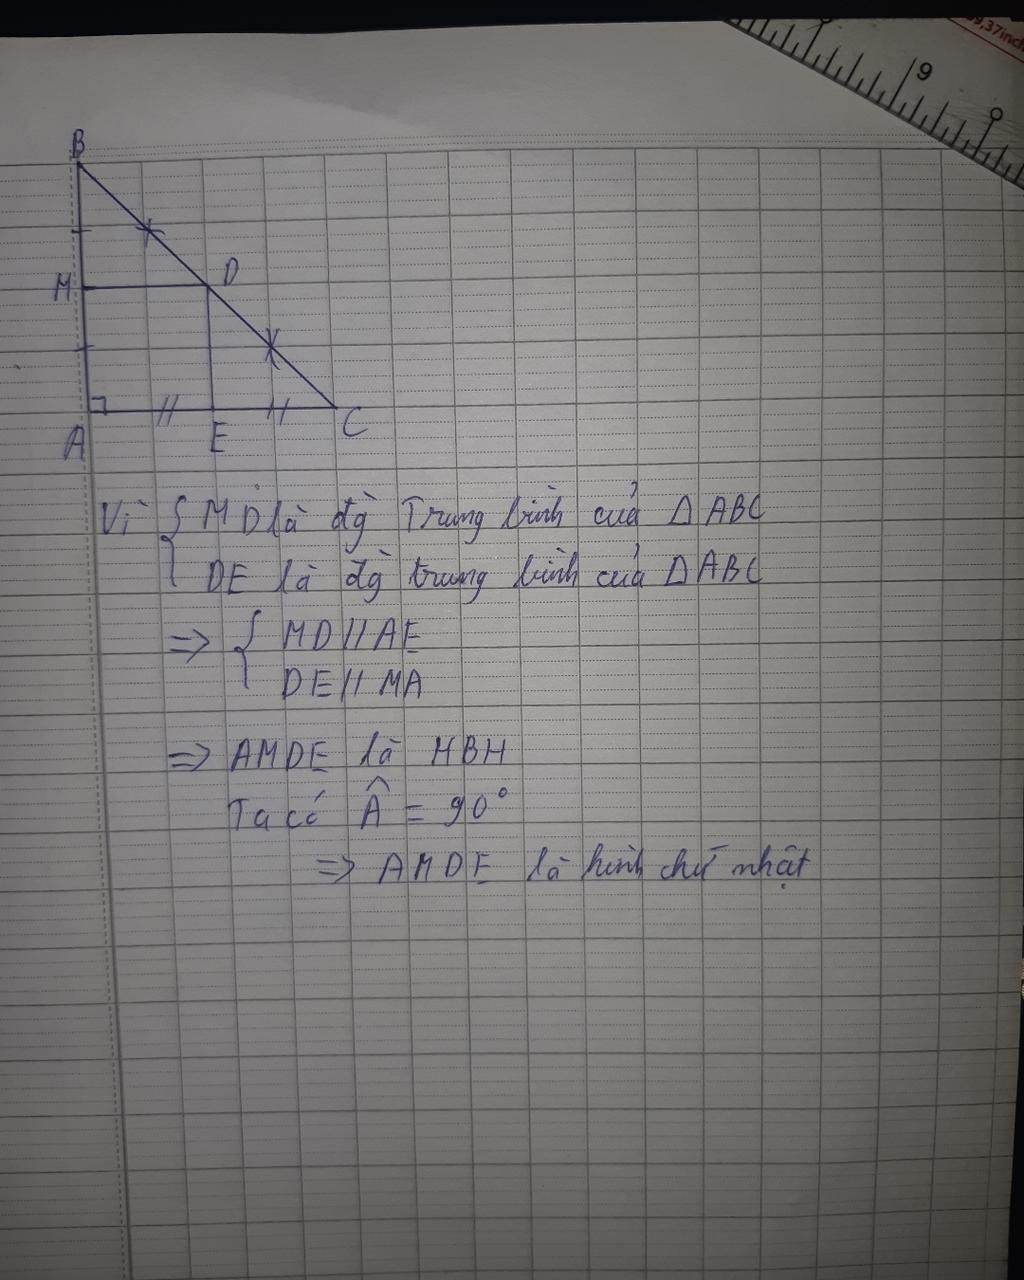 9,37inch
9
B
M
D
A
E
C
Vì { MD là đg̀ Trung bình của Δ ABC
DE là đg̀ trung bình của Δ ABC
=> { MD // AE
DE // MA
=> AMDE là HBH
Ta có Â = 90°
=> AMDE là hình chữ nhật